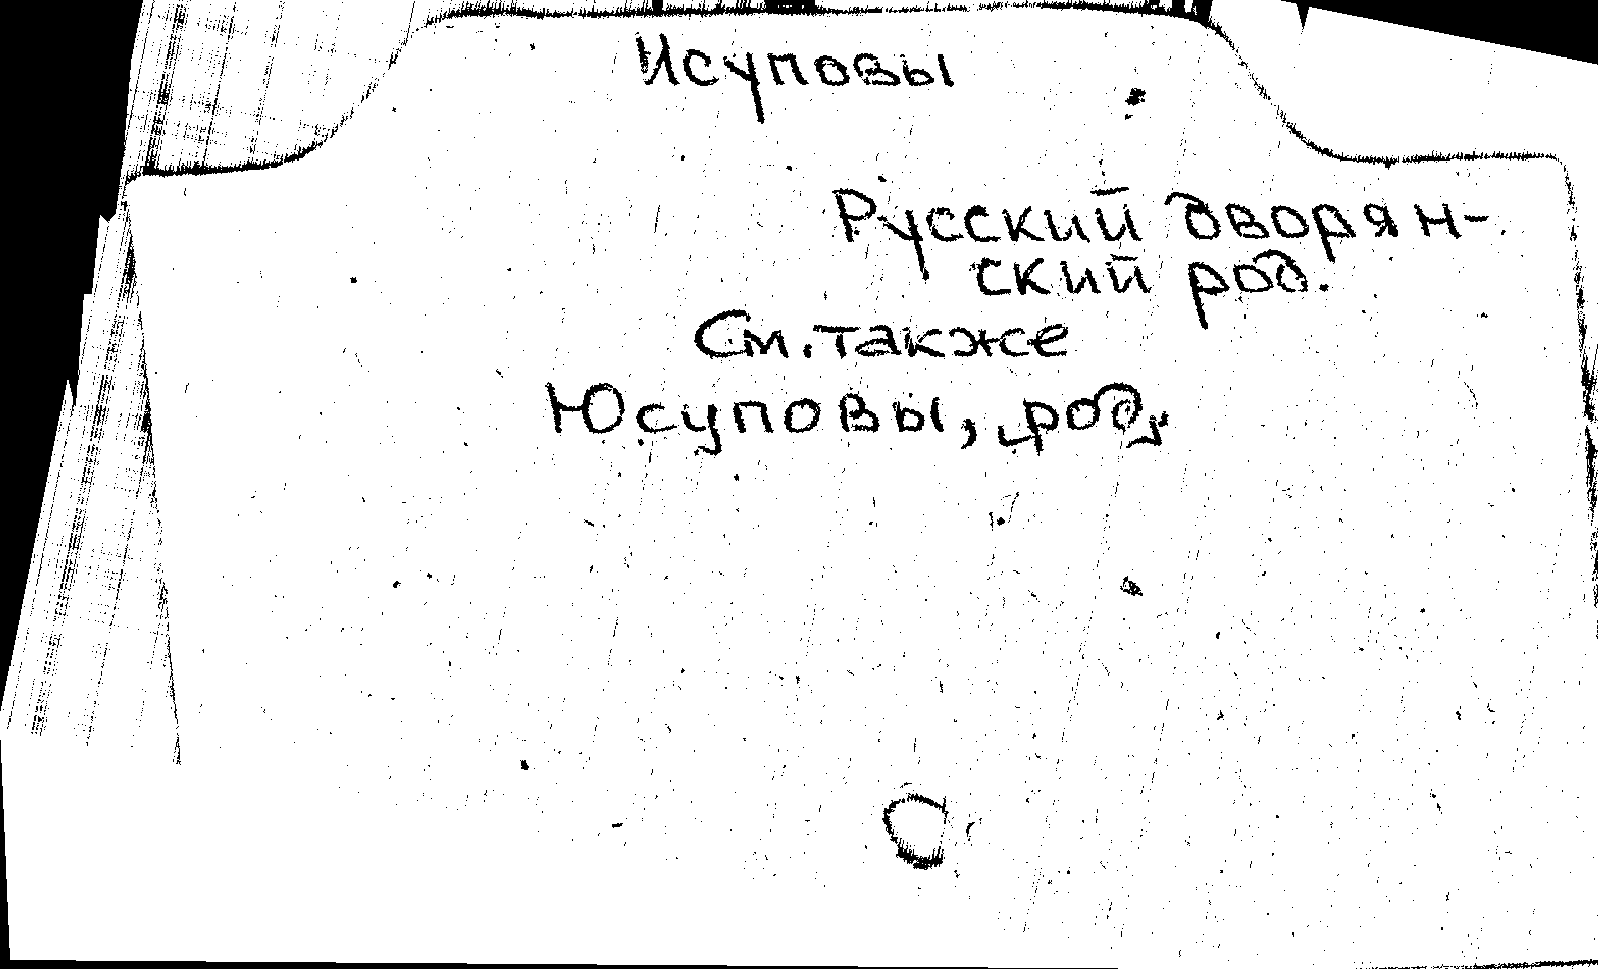 Исуповы
Русский дворян-
ский род.
См. также
Юсуповы, „род„